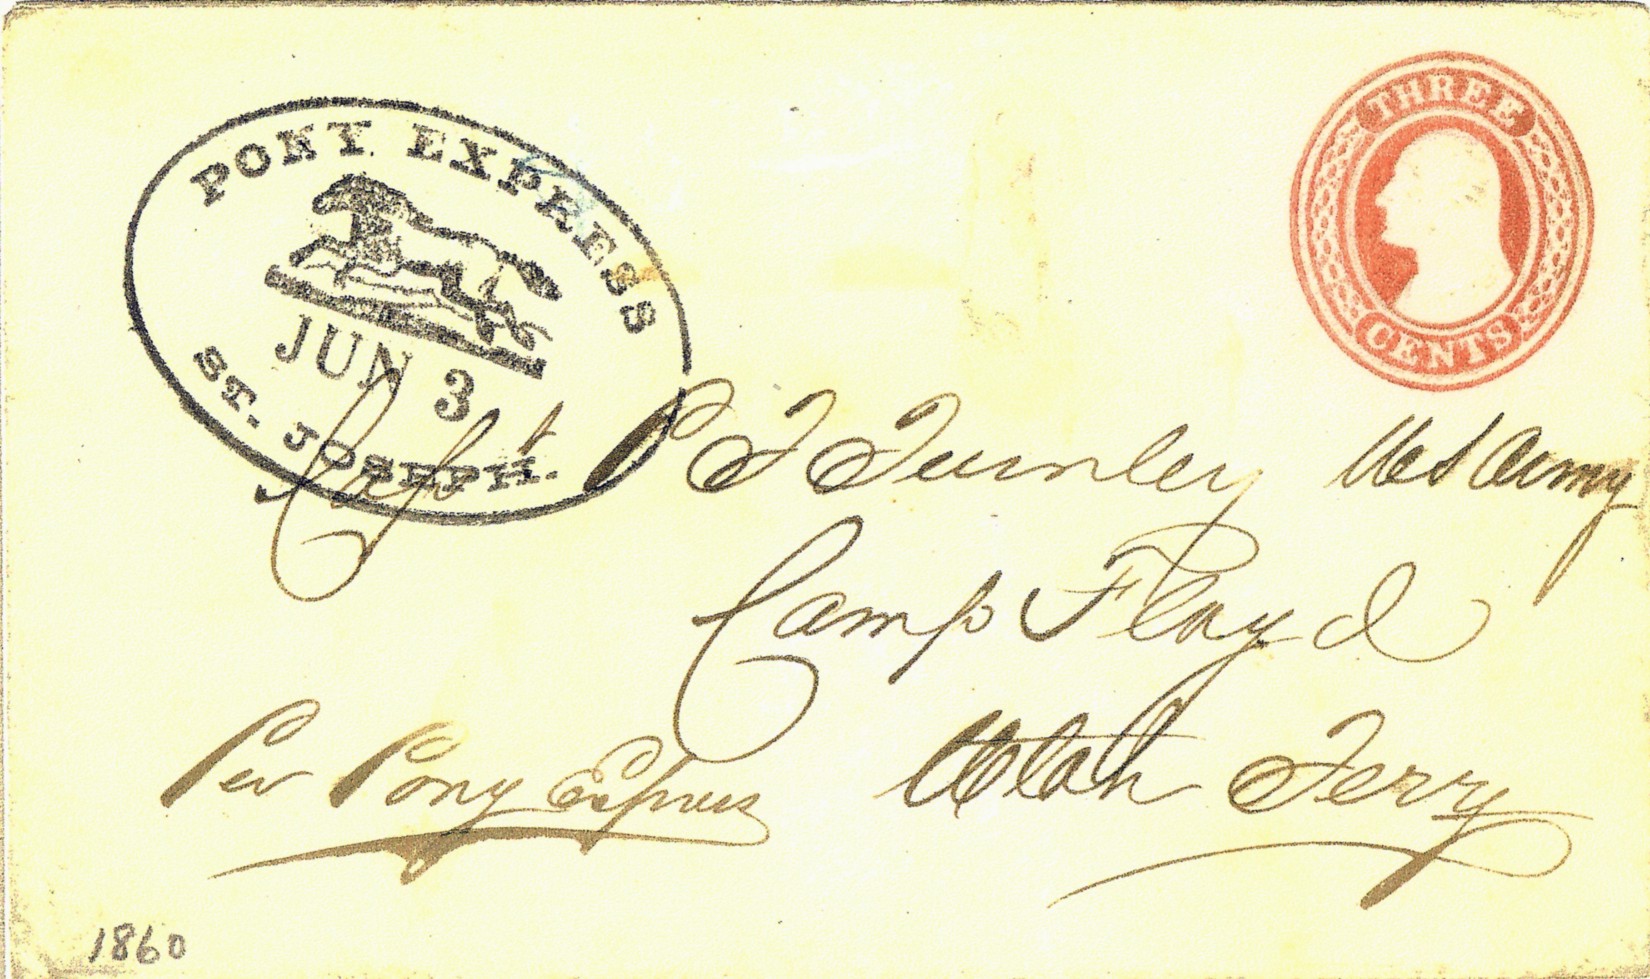 PONY EXPRESS
JUN 3
ST. JOSEPH.
THREE
CENTS
Capt P T Turnley US Army
Camp Floyd
Utah Terry
Per Pony Express
1860